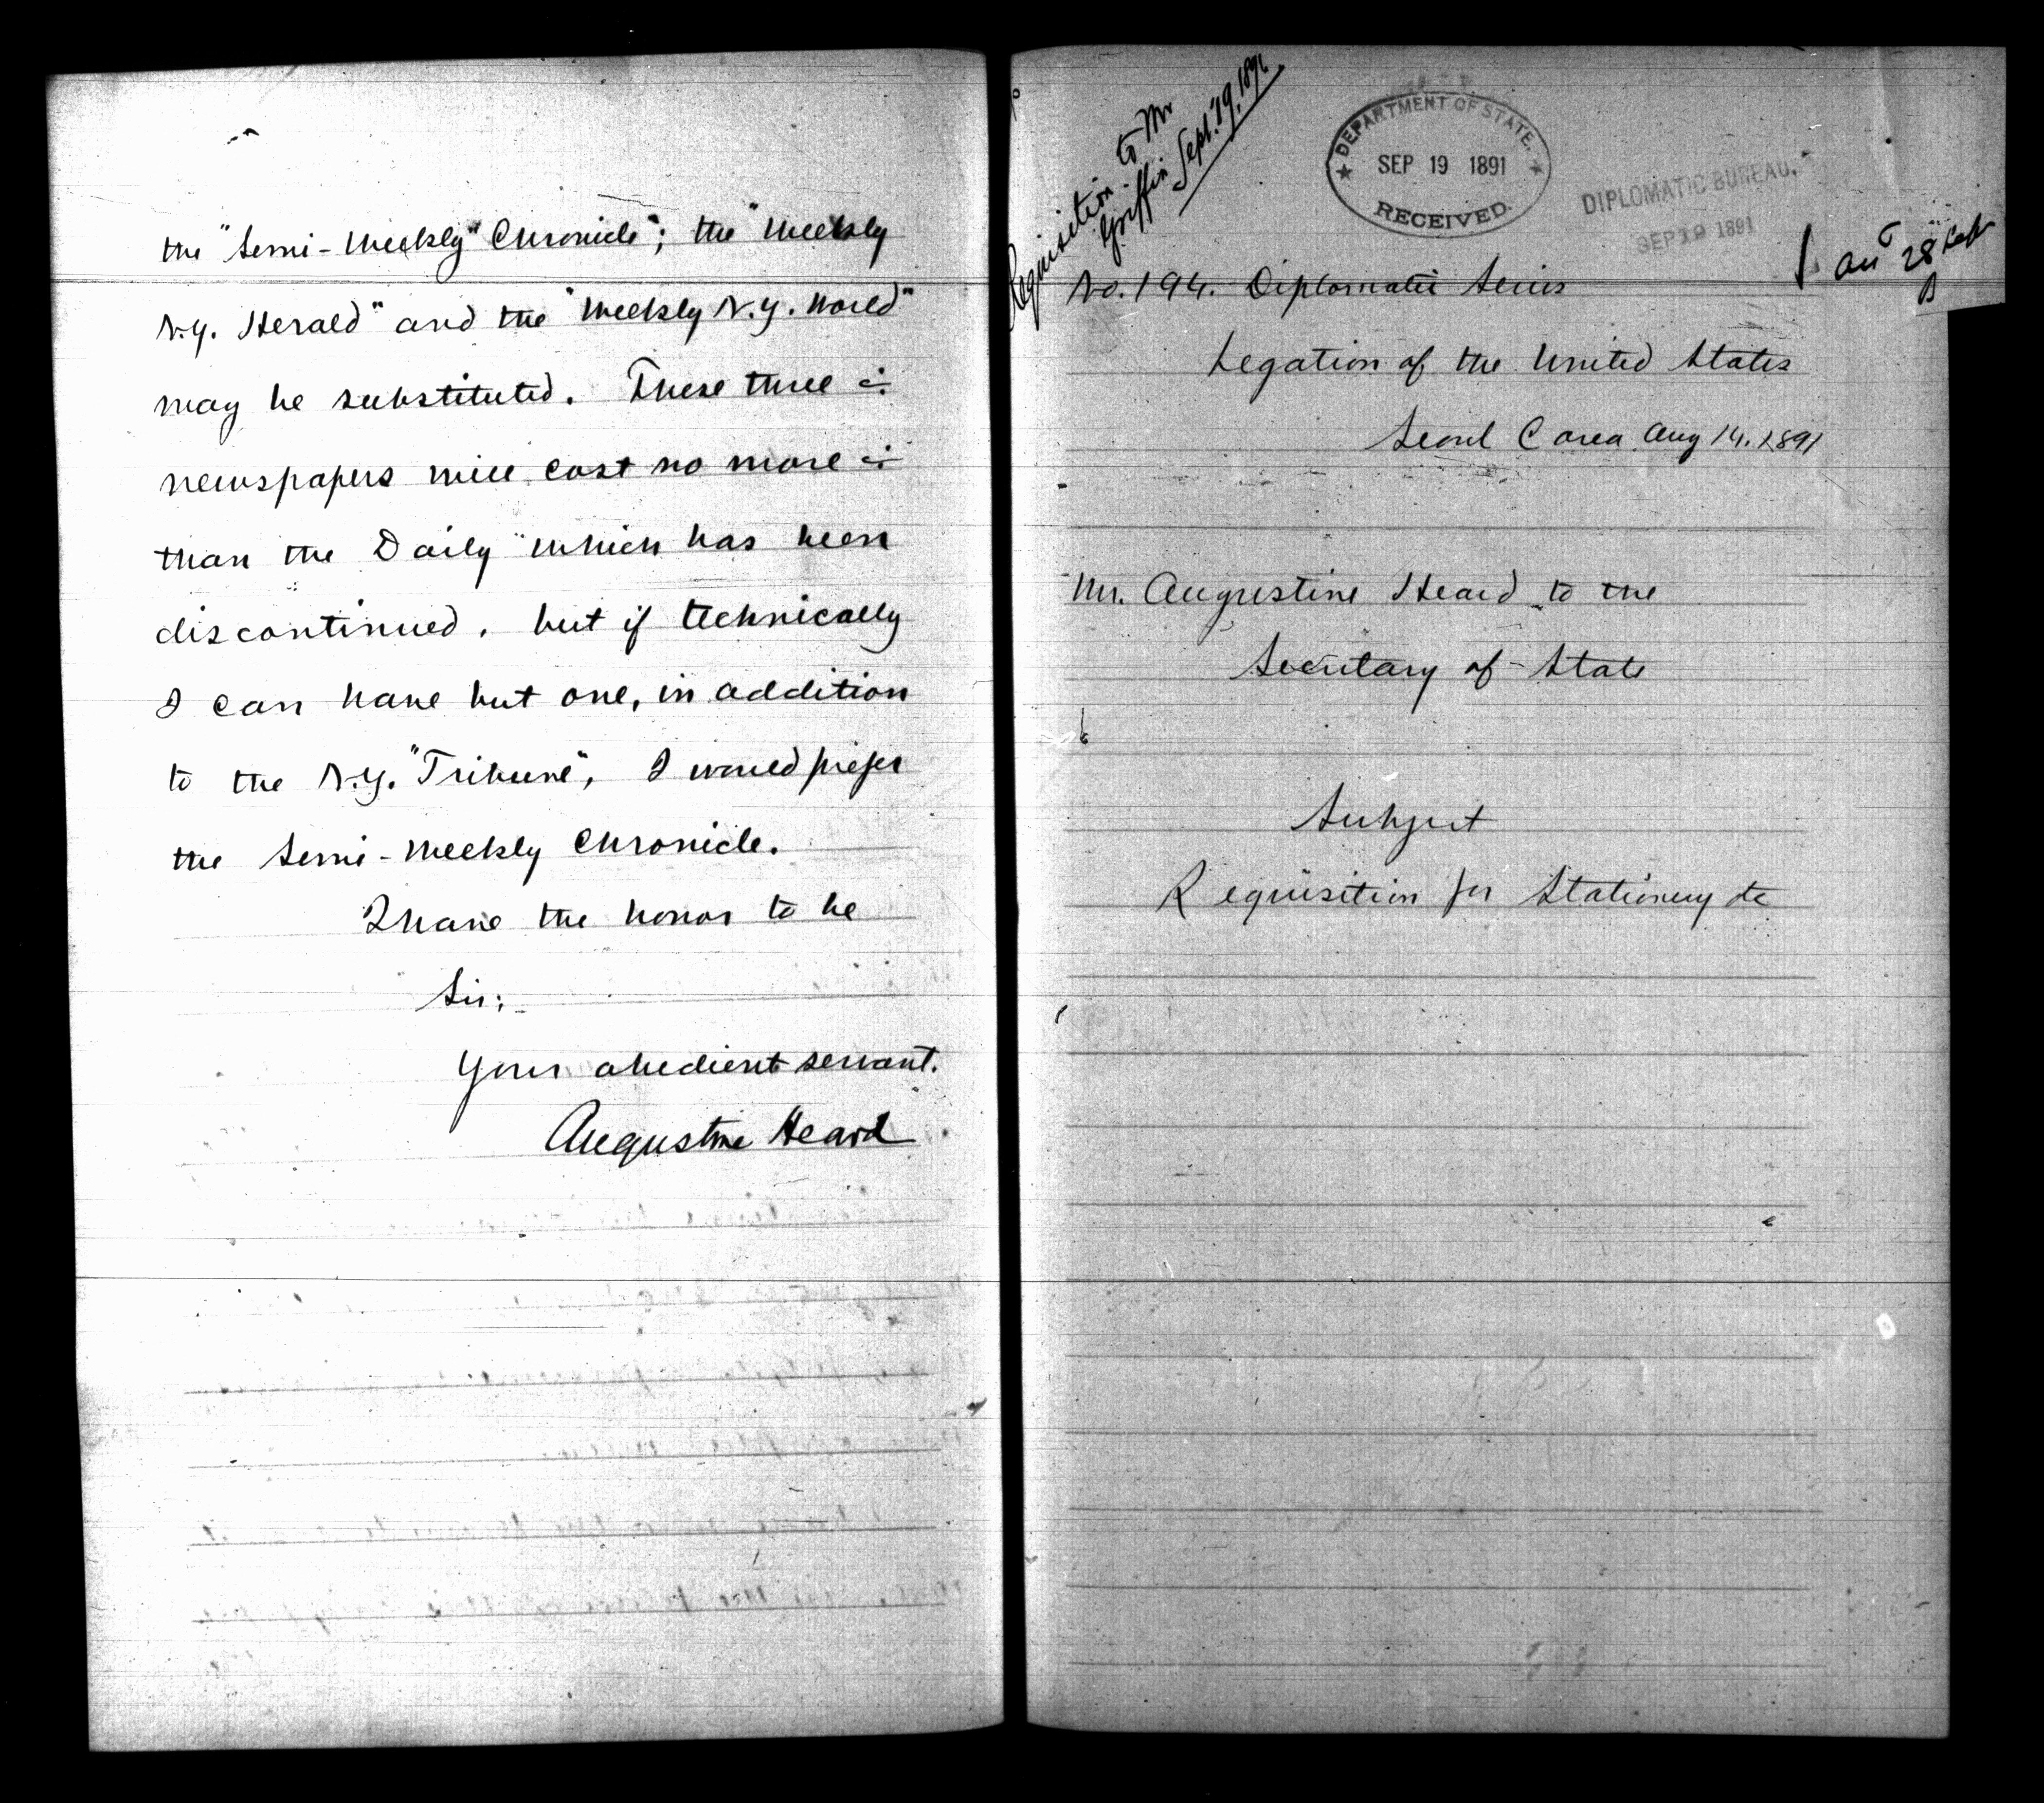 the "Semi-Weekly" Chronicle"; the "Weekly
N.Y. Herald" and the "Weekly N.Y. World"
may be substituted. These three
newspapers will cost no more
than the Daily" which has been
discontinued, but if technically
I can have but one, in addition
to the N.Y. "Tribune", I would prefer
the Semi-Weekly Chronicle.
I have the honor to be
Sir;
Your obedient servant.
Augustine Heard
Requisition to Mr
Griffin Sept. 19. 1891
DEPARTMENT OF STATE.
SEP 19 1891
RECEIVED.
DIPLOMATIC BUREAU.
SEP 19 1891
28 Sept
No. 194. Diplomatic Series
Legation of the United States
Seoul Corea Aug 14. 1891
Mr. Augustine Heard to the
Secretary of State
Subject
Requisition for Stationery &c